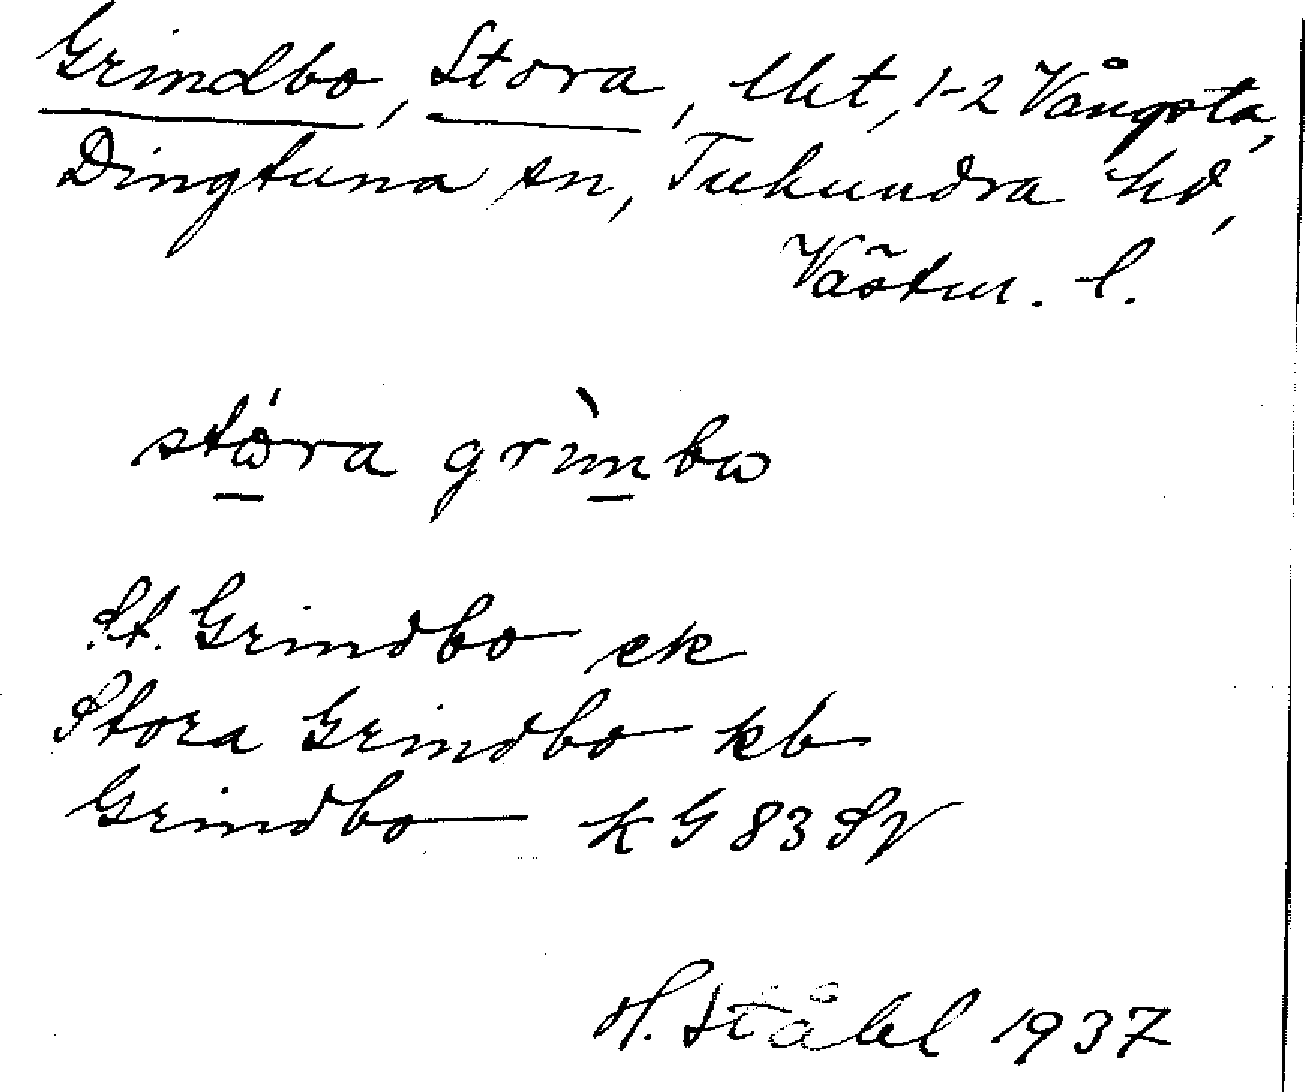 Grindbo, Stora, lht, 1-2 Vångsta,
Dingtuna sn, Tuhundra hd,
Västm. l.
stɷ́ra grìmbɷ
St. Grindbo ek
Stora Grindbo kb
Grindbo k G 83 SV
H. Ståhl 1937